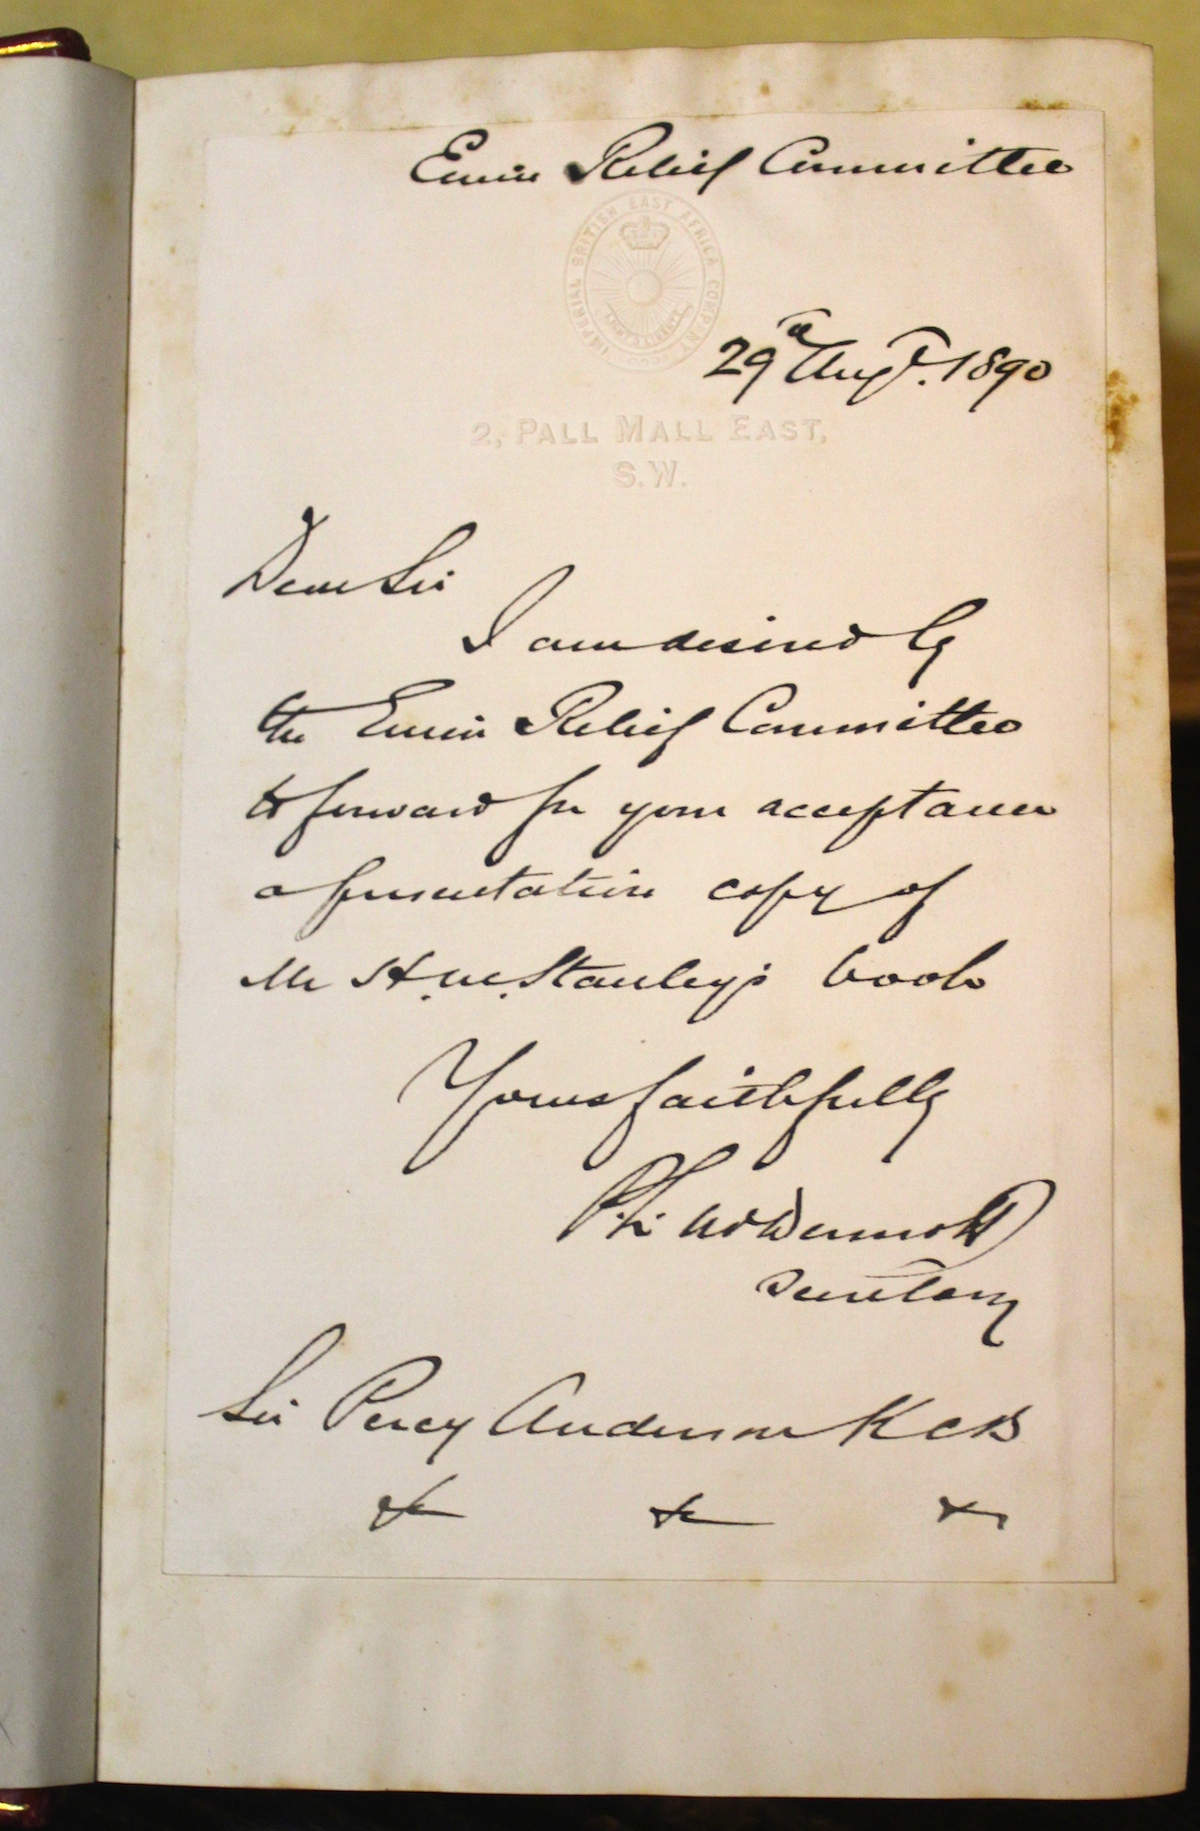 Emin Relief Committee
IMPERIAL BRITISH EAST AFRICA COMPANY
29th Augt. 1890
2, PALL MALL EAST,
S.W.
Dear Sir
I am desired by
the Emin Relief Committee
to forward for your acceptance
a presentation copy of
Mr H.M. Stanley's book
Yours faithfully
P.L. McDermott
Secretary
Sir Percy Anderson KCB
&c &c &c